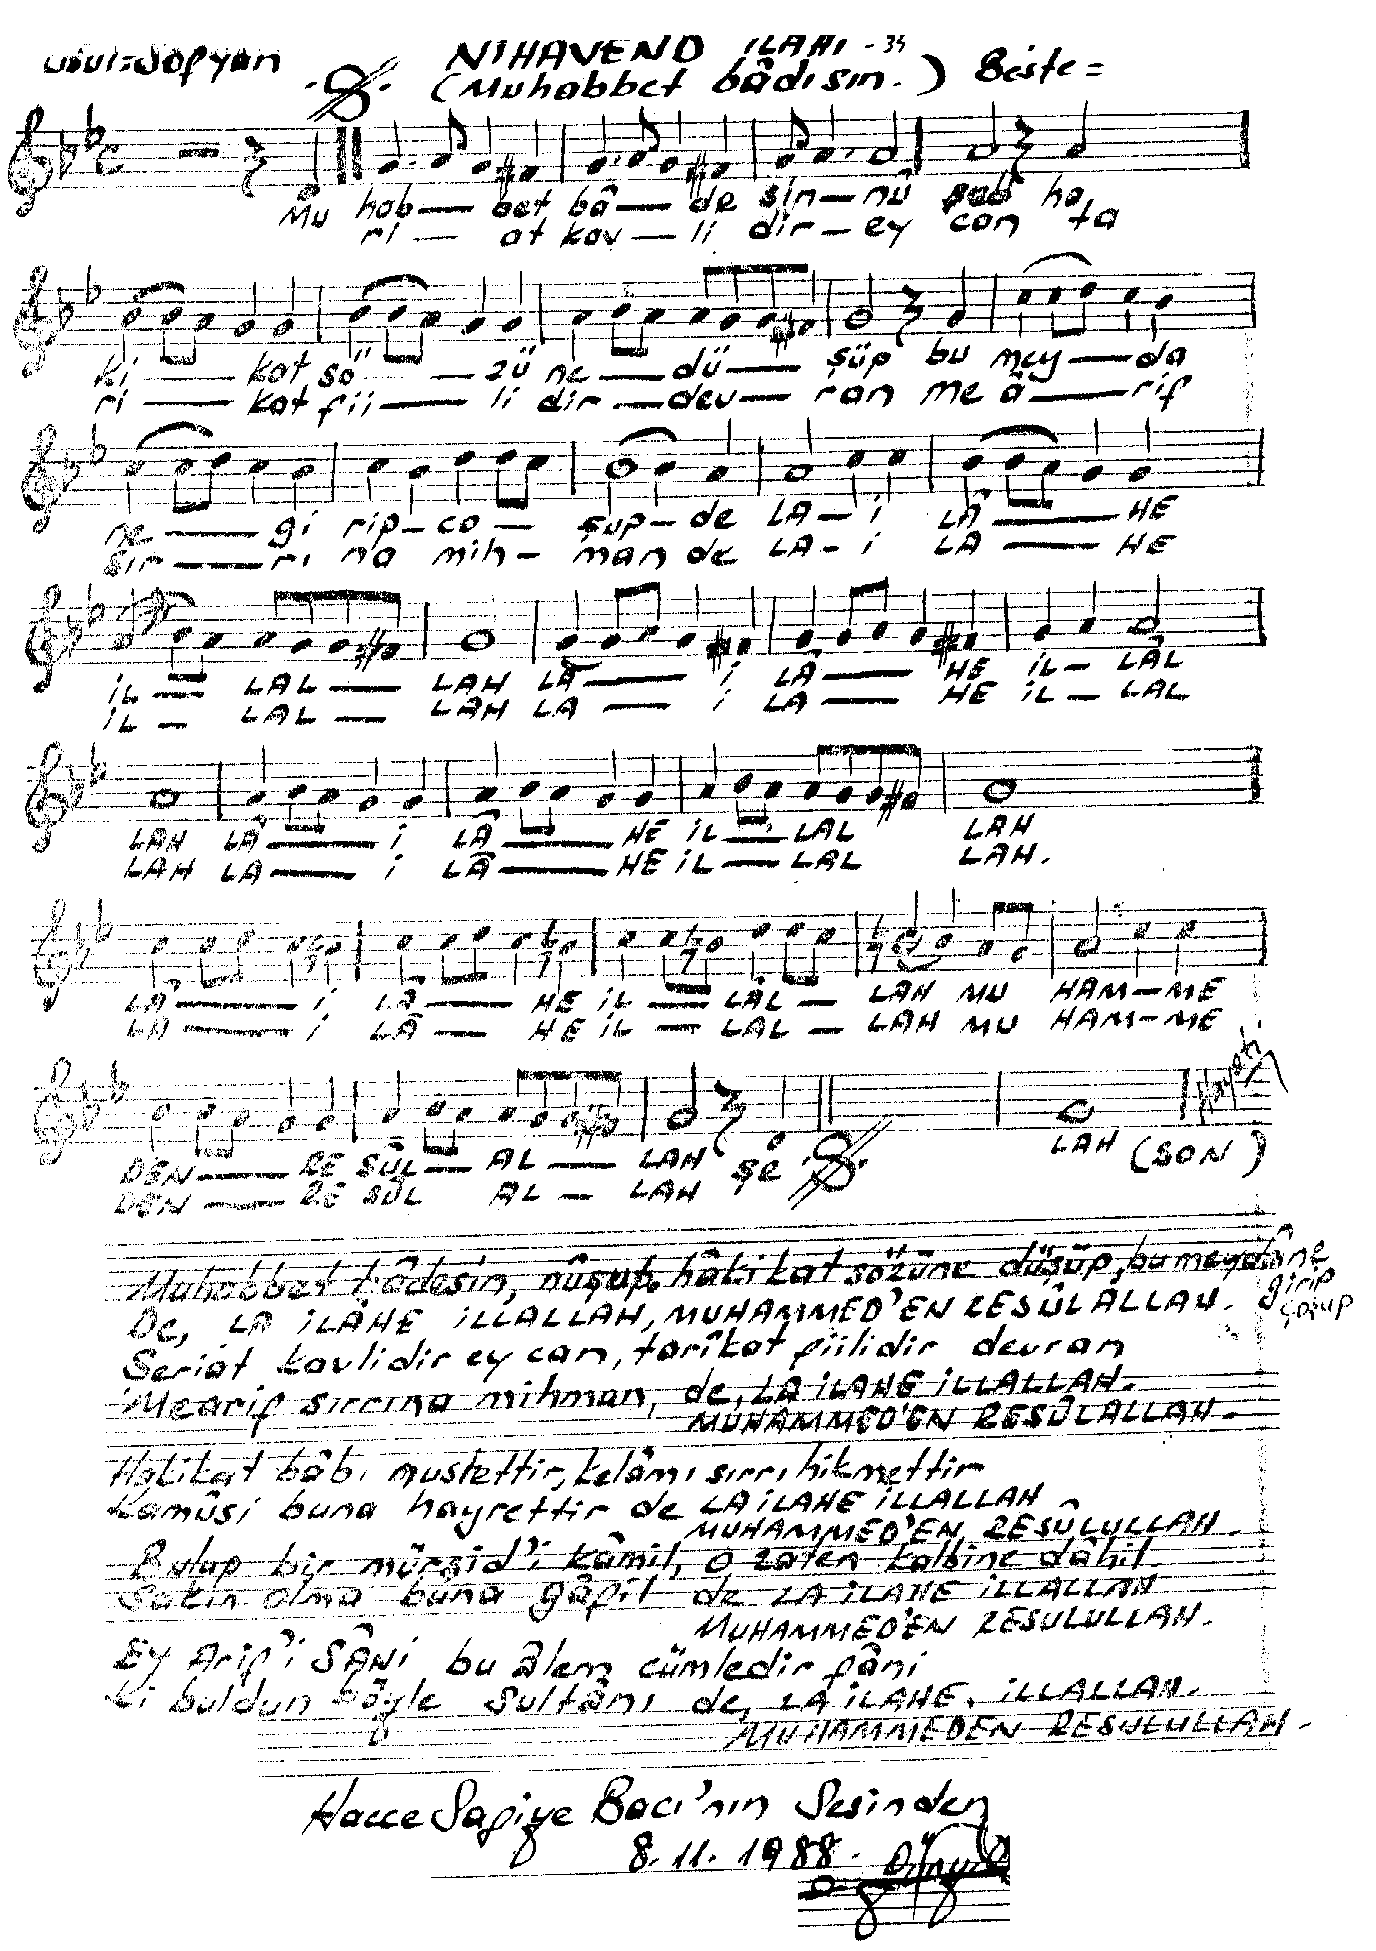 usul=Sofyan
NIHAVEND iLAHi -34
(Muhabbet bâdisin.) Beste=
Mu hab— bet bâ— de sin—nû ha
ri — at kav—li dir—ey can ta
ki — kat sö — zü ne—dü— şüp bu mey—da
ri — kat fii— li dir—dev— ran me â—rif
ne — gi rip—co— şup—de LA—i LÂ — HE
sir—ri na mih— man de LA-i LA — HE
iL — LAL — LAH LA— i LÂ— HE iL— LÂL
iL — LAL — LAH LA — i LA — HE iL — LAL
LAH LÂ— i LÂ — HE iL— LAL LAH
LAH LA— i LÂ— HE iL — LAL LAH.
LÂ— i LÂ— HE iL — LÂL — LAH MU HAM—ME
LA— i LÂ— HE iL — LAL — LAH MU HAM—ME
DEN— RE SÛL— AL — LAH şe LAH (SON)
DEN — RE SÛL AL — LAH
Muhabbet bâdesin, nûşup hâkikat sözüne düşüp, bu meydâne girip coşup
De, LA iLÂHE iLLALLAH, MUHAMMED'EN RESÛLALLAH.
Seriat kavlidir ey can, tarîkat fiilidir devran
Mearif sırrına mihman, de, LA iLAHE iLLALLAH.
MUHAMMED'EN RESÛLALLAH.
Hakikat bâbı mustettir, kelâmı sırrı hikmettir
Kamûsi buna hayrettir de LA iLAHE iLLALLAH
MUHAMMED'EN RESÛLULLAH.
Bulup bir mürşid'i kâmil, o zaten kalbine dâhil.
Sakın olma buna gâfil de LA iLAHE iLLALLAH
MUHAMMED'EN RESULULLAH.
Ey Arif'i SÂNi bu âlem cümledir fâni
ki buldun böyle sultânı de, LA iLAHE, iLLALLAH.
MUHAMMEDEN RESULULLAH.
Hacce Safiye Bacı'nın Sesinden
8.11.1988.